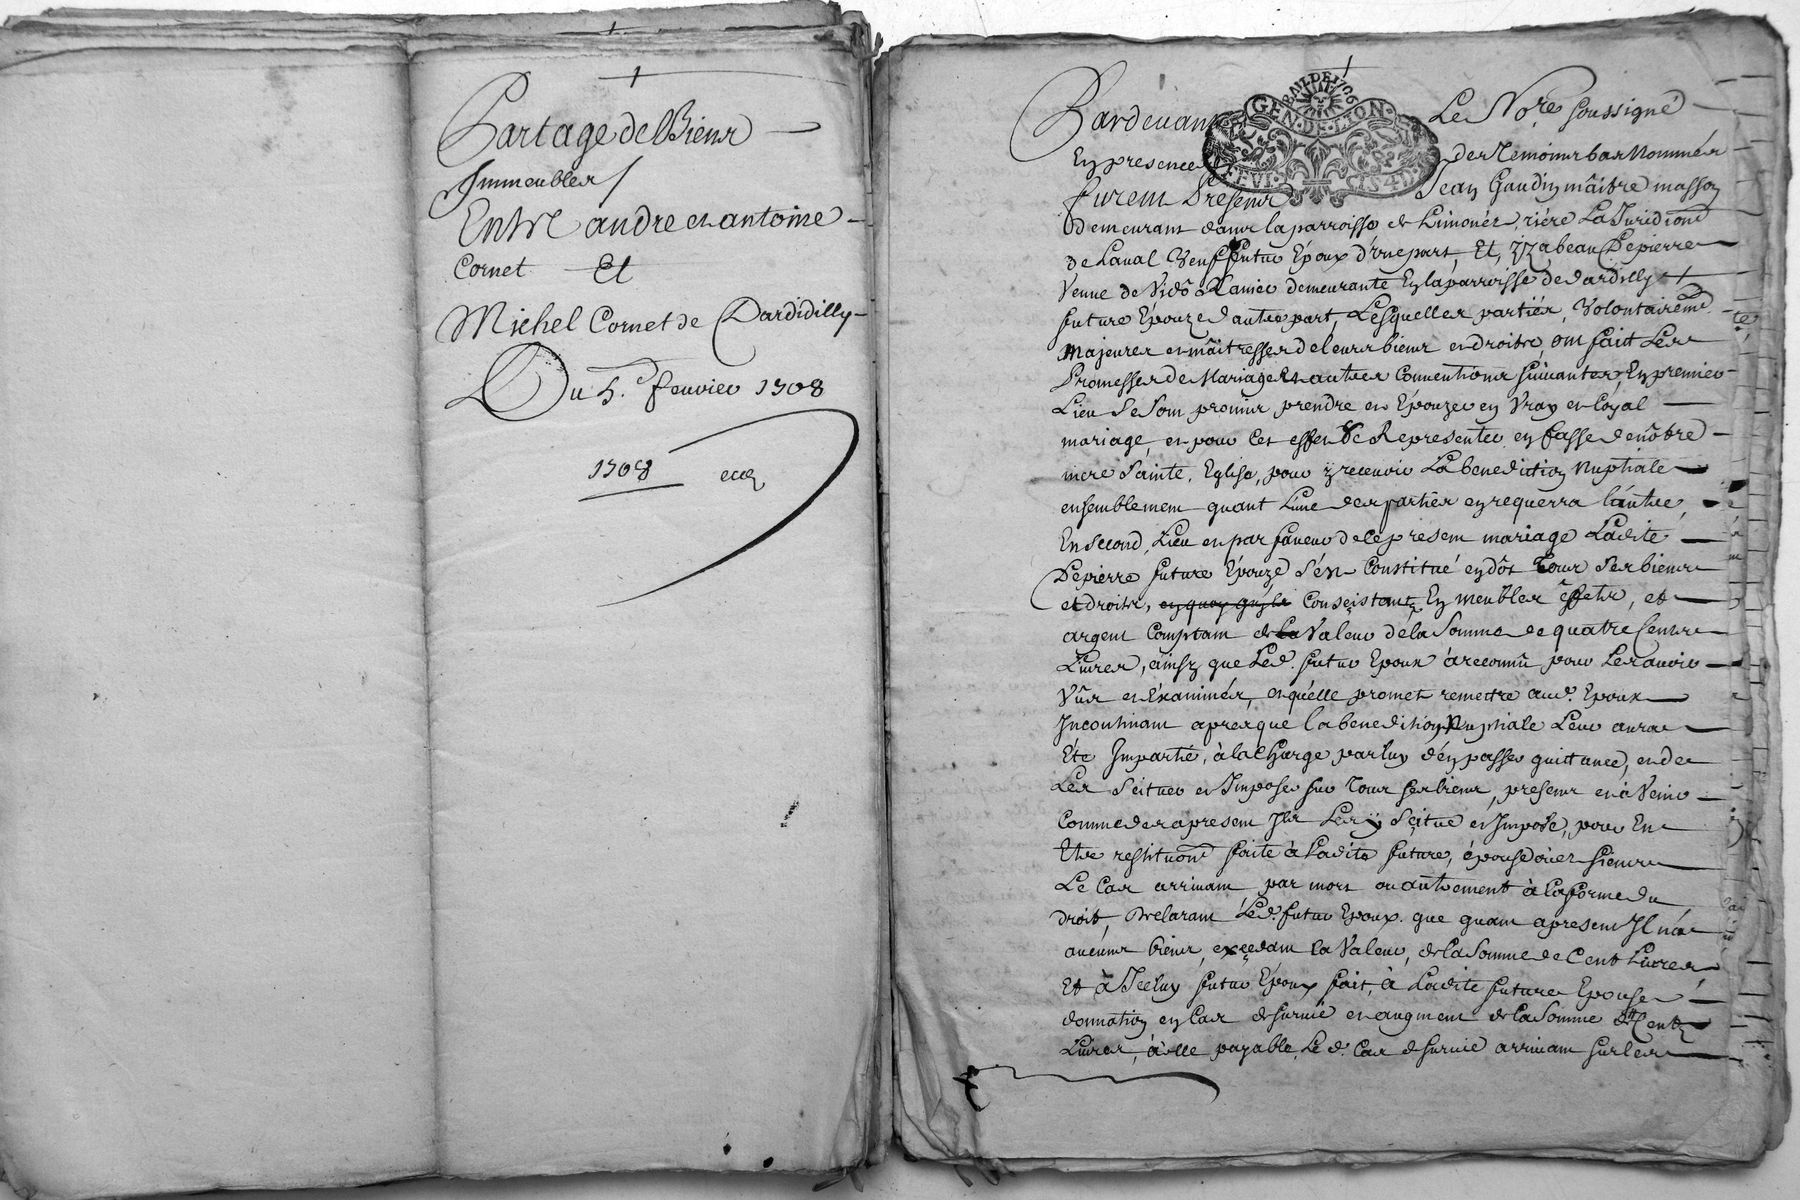 Partage de Biens
Immeubles /
Entre andre et antoine
Cornet Et
Michel Cornet de Dardidilly
Du 5.e feuvier 1708
1708
Pardevant Le No.re soussigné
En presence des Temoins bas Nommés
furent Presents Jean Gaudin mâitre masson
demeurant dans la parroisse de Limonés, riére La Juridiond
de Laval Veuf futur Époux d'úne part, Et, Yzabeau Depierre
Venue de Demeurante En la parroisse de dardilly
future Epouze d'autre part, Lesquelles partiés, Volontairemt
Majeures et mâitresses de leurs biens et droits, ont fait Les
Promesses de Mariage Et autres Conventions suivantes, En premier
Lieu Se sont promis prendre et Épouzer en Vray et loyal
mariage, et pour Cet effet Se Representer en fasse de nôtre
mere Sainte Eglise, pour y recevoir La benediction Nuptiale
ensemblement quant L'une des partiés en requerra l'autre,
En second Lieu et par faveur de Ce present mariage Ladite
Depierre future Épouze S'ést Constitué en dôt Tous Ses biens
et droits, en quoy qu'ils Conseistants En meubles éffets, et
argent Comptant de la Valeur de la Somme de quatre Cents
Livres, ainsy que Led. futur Epoux à reconnû pour Les avoir
Vûs et Éxaminés, et qu'elle promet remettre aud. Epoux
Incontinant apres que la benediction Nuptiale Leur aura
Eté Impartie, à la Charge par luy d'én passer quittance, et de
Les Seituer et Imposer sur Tous ses biens, presents et à Venir
Comme des apresent Il Les y Seitue et Impose, pour En
Etre restitutiond faite à Ladite future, épouse óu és siens
Le Cas arrivant par mort ou autrement à la forme du
droit, Declarant Led. futur Epoux que quant apresent Il n'á
aucuns biens, exçedant la Valeur, de la Somme de Cent Livres
Et à Iceluy futur Époux fait, à Ladite future Epouse
donnation en Cas de survie et augment de la Somme de Cent
Livres, à élle payable, Le d. Cas de survie arrivant sur Les
GEN·DE·LION·